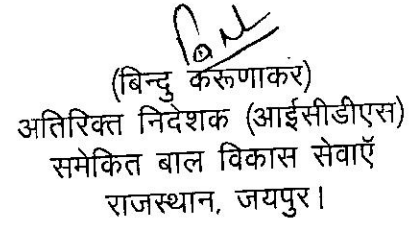 (बिन्दु करूणाकर)
अतिरिक्त निदेशक (आईसीडीएस)
समेकित बाल विकास सेवाऍ
राजस्थान, जयपुर।